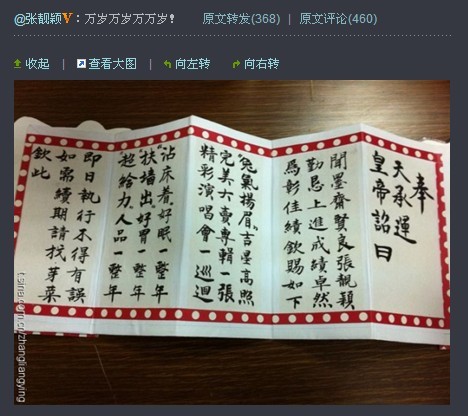 @张靓颖V：万岁万岁万万岁！ 原文转发(368) | 原文评论(460)
收起 | 查看大图 | 向左转 向右转
奉
天承運
皇帝詔曰
聞墨齋賢良張靚穎
勤思上進成績卓然
為彰佳績欽賜如下
"兔氣揚眉"吉星高照
完美大賣專輯一張
精彩演唱會一巡迴
"沾床着"好眠一整年
"扶墙出"好胃一整年
"超給力"人品一整年
即日執行不得有誤
如需續期請找芽菜
欽此
t.sina.com.cn/zhangliangying